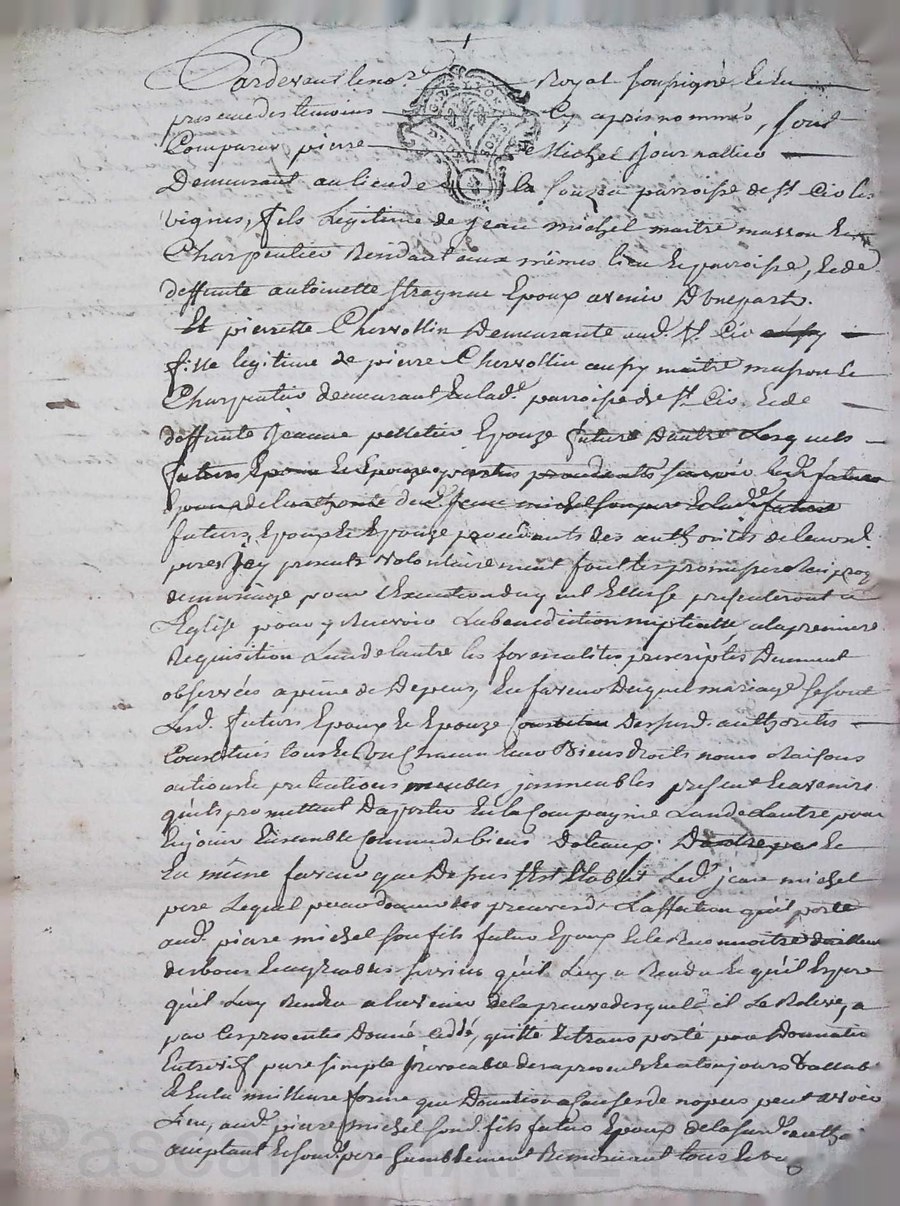 Pardevant le no.re Royal soussigné et en
presence des temoins Cy apres nommés, sont
Comparus pierre Michel Journallier
Demeurant au lieu de la parroisse de St. Cir les
vignes, fils Legitime de jean michel maitre masson et
Charpentier Residant aux mêmes lieu et parroisse, et de
deffunte antoinette Epoux avenir D'une part.
Et pierrette Chervollin Demeurante aud. St. Cir aussy
fille legitime de pierre Chervollin aussy maitre masson et
Charpentier demeurant en lad.e parroisse de St. Cir et de
deffunte Jeanne pelletier Epouze future D'autre Lesquels
futurs Epoux et Epouze lesd. futurs
Epoux de l'authorité dud. Jean michel son pere et lad.e future
futurs Epoux et Epouze procedants des authorités de leurs.
peres icy presents volontairement se sont promis
de mariage pour l'Execution duquel Ils se presenteront a
L'Eglise pour y Recevoir La benediction nuptialle, a la premiere
Requisition L'un de l'autre les formalités prescriptes Duement
observées a peine de Depens, En faveur Duquel mariage se sont
Lesd. futurs Epoux et Epouze constitué Desused. authorités
Constitués tous et Un Chacun Leurs Biens droits noms Raisons
actions et pretentions meubles, immeubles presents et avenirs
qu'ils promettent D'aporter En la Compagnie L'un de L'autre pour
En jouir Ensemble Comme de biens Dotaux. D'autre part Et
En même faveur que Dessus s'Est Etablit Led. jean michel
pere Lequel pour donner des preuves de L'affection qu'il porte
aud. pierre michel son fils futur Epoux Et le Reconnoitre d'ailleurs
des bons et agreables services qu'il Luy a Rendu et qu'il Espere
qu'il Luy Rendra a l'avenir de la preuve desquels il Le Releve, a
par Ces presentes Donné, Ceddé, quitté Et transporté par Donnation
Entre vifs pure simple irrevocable des a present et a toujours Vallable
Et En la meilleure forme que Donation a Cause de nopces peut avoir
Lieu, aud. pierre michel sond. fils futur Epoux de la sused. authorité
acceptant et sond. pere humblement Remerciant tous et un